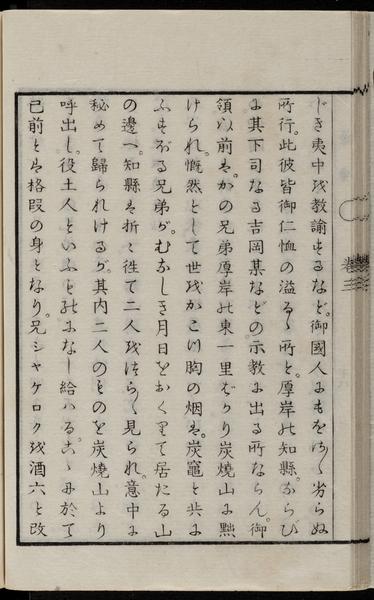 じき夷中或教諭するなど。御國人にもをさ〱劣らぬ
所行。此彼皆御仁恤の溢るゝ所と。厚岸の知縣。ならび
に其下司なる吉岡某などの示教に出る所ならん。御
領以前は。かの兄弟厚岸の東一里ばかり炭燒山に黜
けられ。慨然として世をかこつ胸の烟は。炭竈と共に
ふすぼる兄弟が。むなしき月日をおくりて居たる山
の邊へ。知縣は折々徃て二人をつら〱見られ。意中に
秘めて歸られけるが。其内二人のものを炭燒山より
呼出し。役土人といふものになし給はる。こゝに於て
已前とは格段の身となり。兄シャケロクを酒六と改
巻三